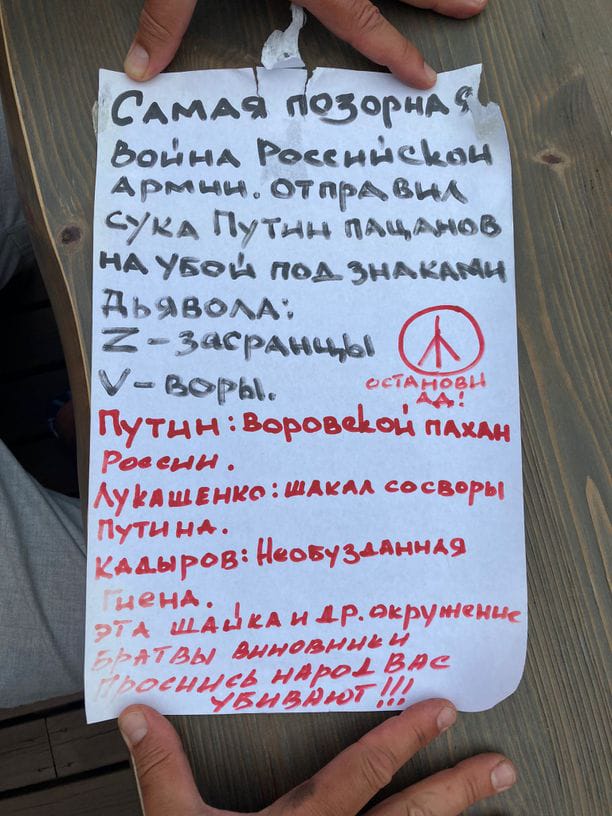 Самая позорная
война Российской
армии. отправил
сука Путин пацанов
на убой под знаками
Дьявола:
Z - засранцы
V - воры.
останови
ад!
Путин: Воровской пахан
России.
Лукашенко: шакал со своры
Путина.
Кадыров: Необузданная
Гиена.
эта шайка и др. окружение
братвы виновники
Проснись народ вас
убивают!!!